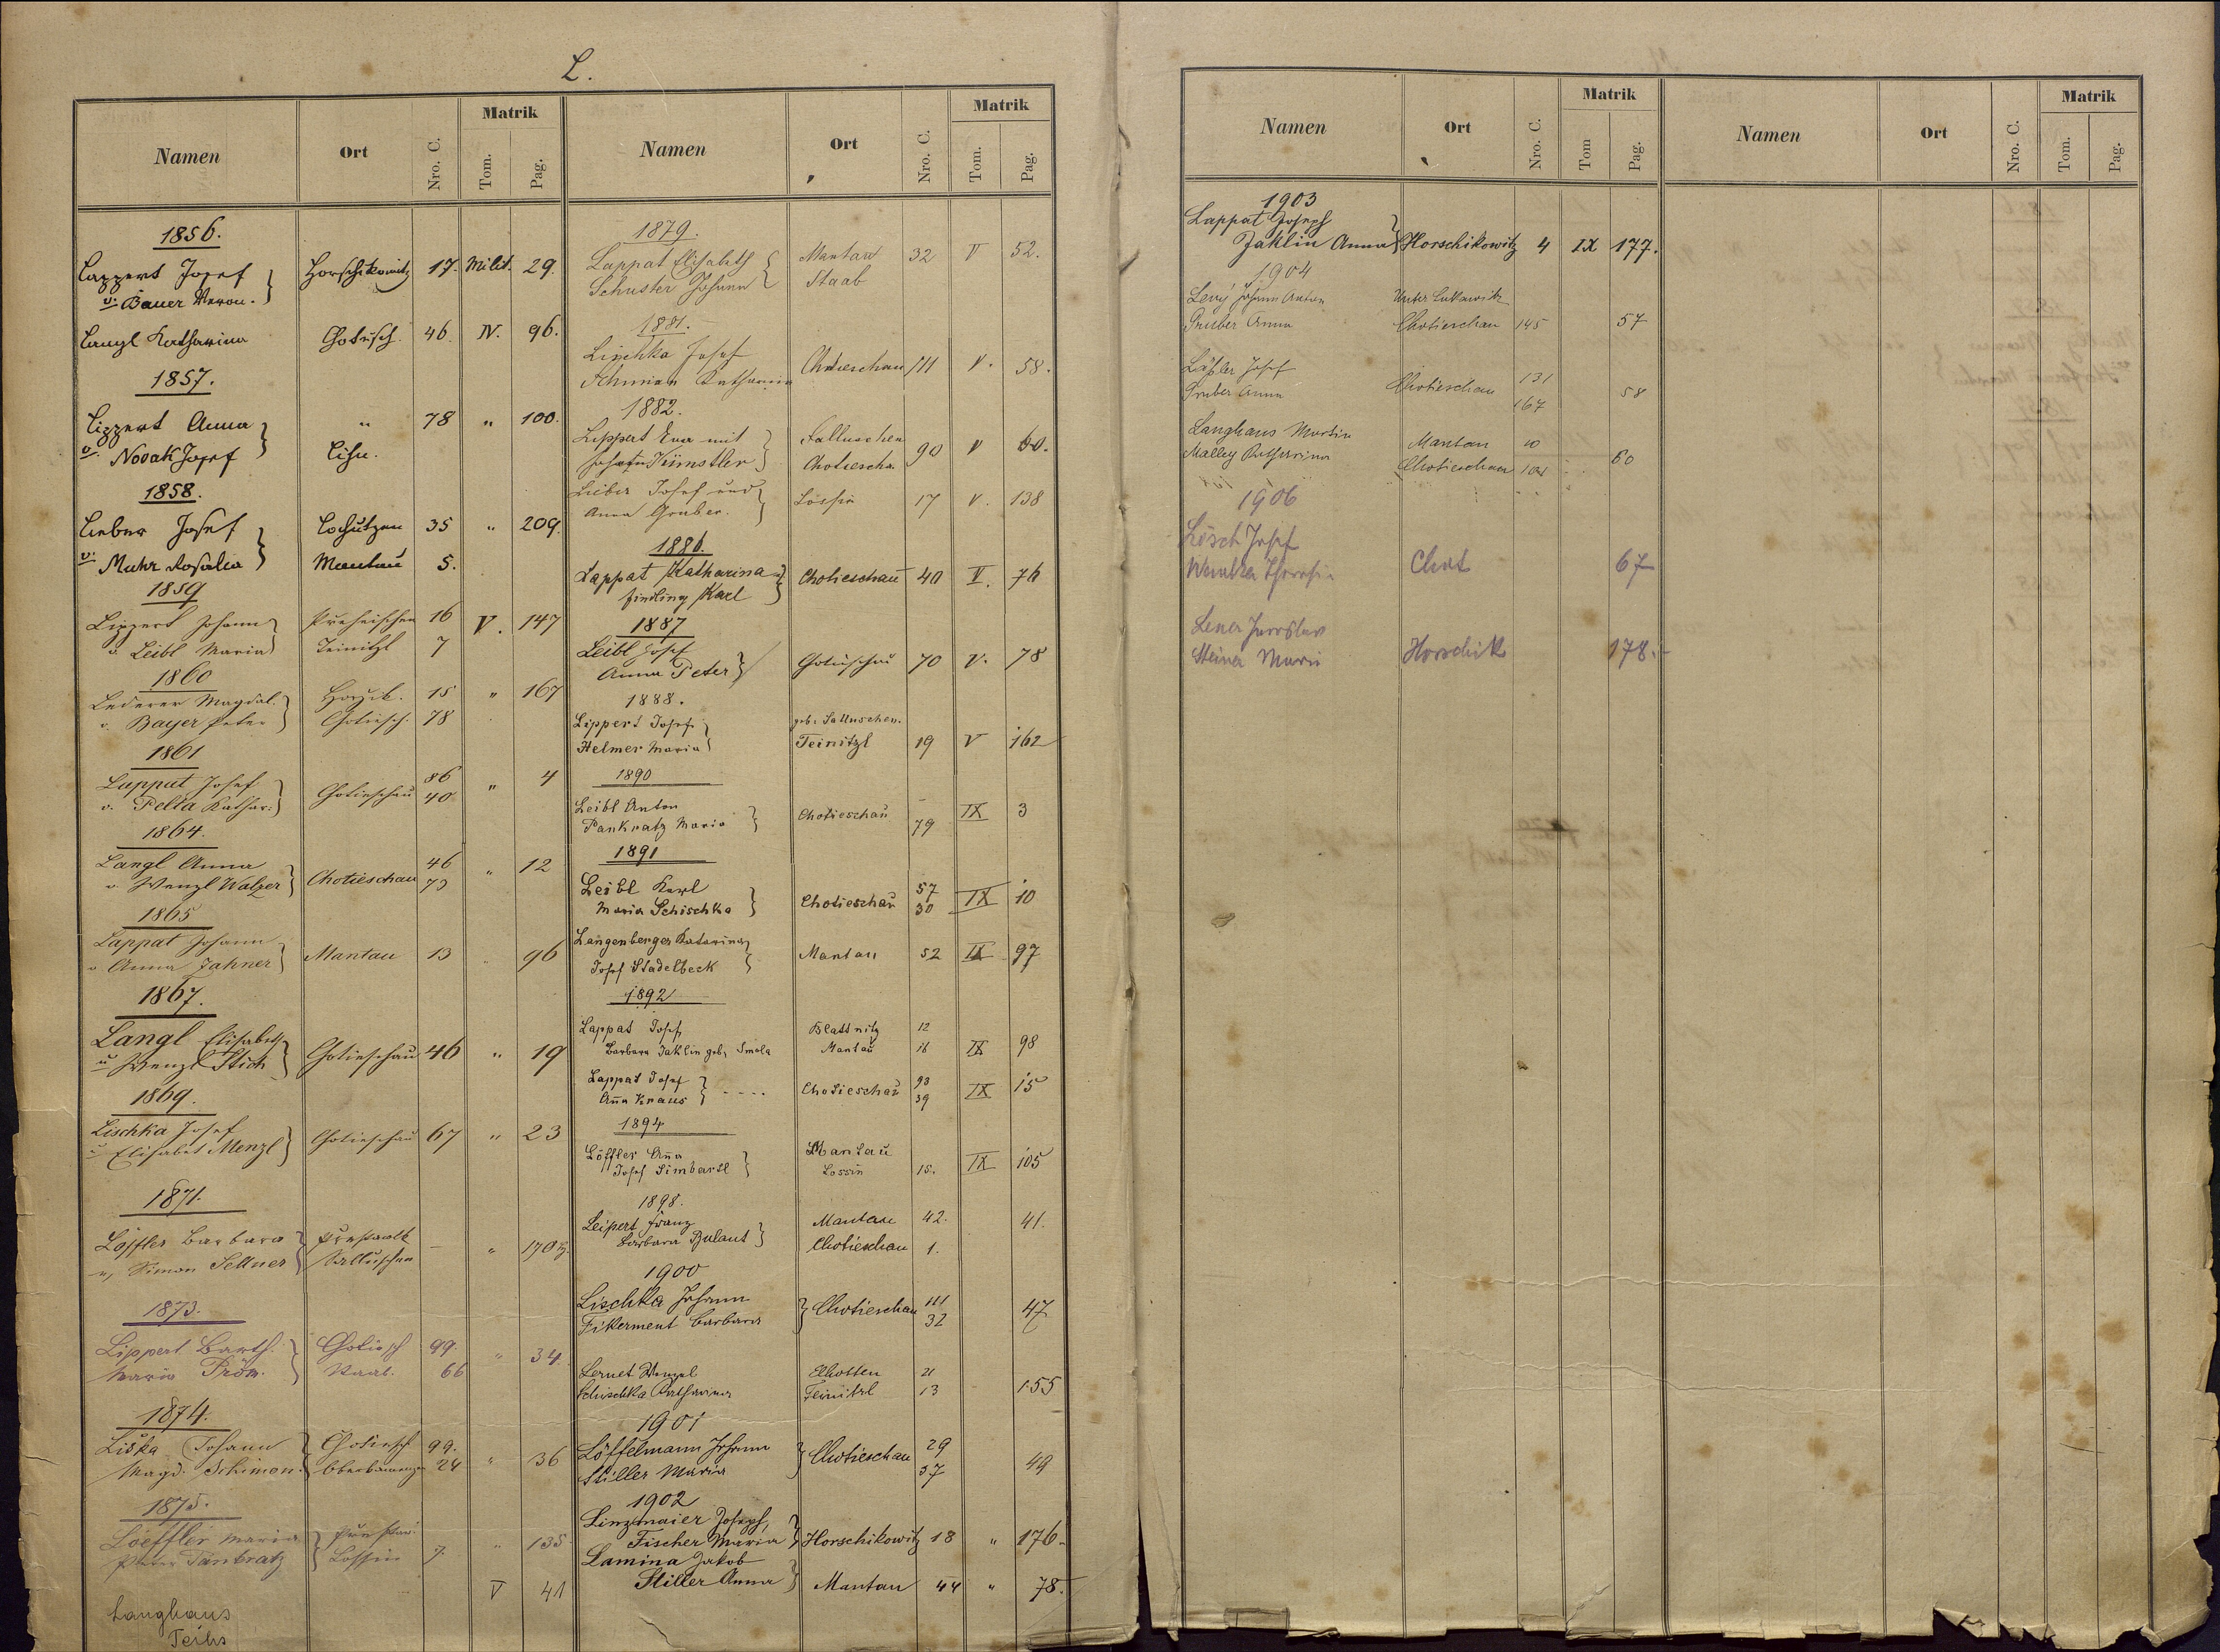 L.
Namen Ort Nro. C. Matrik Tom. Pag.
1856.
Lappert Josef Horschikowitz 17. Milit. 29.
u. Bauer Veron.
Langl Katharina Chotiesch. 46. IV. 96.
1857.
Lippert Anna " 78 " 100.
u. Novak Josef
1858.
Lieber Josef 35 " 209.
u. Muhr Rosalia Mantau 5.
1859
Lippert Johann 16 V. 147
u. Leibl Maria Teinitzl 7
1860
Lederer Magdal. 15 " 167
u. Bayer Peter Chotiesch. 78
1861
Lappat Josef Chotieschau 86 " 4
u. Pelta Kathar. 40
1864.
Langl Anna Chotieschau 46 " 12
u. Wenzl Walzer
1865
Lappat Johann Mantau 13 96
u Anna Jahner
1867.
Langl Elisabeth Chotieschau 46 " 19
u Wenzl Stich
1869.
Lischka Josef Chotieschau 67 " 23
u Elisabet Menzl
1871.
Löffler Barbara — " 170
u, Simon Sellner Salluschen
1873.
Lippert Barth. Chotiesch 99. " 34.
Maria Staab. 66
1874.
Liška Johann Chotiesch 99. " 36
Magd. Schimon 24
1875.
Loeffler Maria " 135
Peter Pankratz Lossin 7.
V 41
Langhans
Teihs
Namen Ort Nro. C. Matrik Tom. Pag.
1879.
Lappat Elisabeth Mantau 32 V 52.
Schuster Johann Staab
1881.
Lischka Josef Chotieschau 111 V. 58.
Katharina
1882.
Lippert Eva mit 90 V 60.
Künstler Chotiescha.
Lieber Josef und Lossin 17 V. 138
Anna Gruber.
1886.
Lappat Katharina Chotieschau 40 V. 76
Findling Karl
1887
Leibl Josef Chotieschau 70 V. 78
Anna Peter
1888.
Lippert Josef geb. Salluschen.
Helmer Maria Teinitzl 19 V 162
1890
Leibl Anton Chotieschau 79 IX 3
Pankratz Maria
1891
Leibl Karl Chotieschau 57 IX 10
Maria Schischka 30
Langenberger Katarina Mantau 52 IX 97
Josef Stadelbeck
1892
Lappat Josef Blattnitz 12
Barbara Jaklin geb. Smola Mantau 16 IX 98
Lappat Josef Chotieschau 93 IX 15
Anna Kraus 39
1894
Löffler Anna Mantau IX 105
Josef Simbartl Lossin 15.
1898.
Leipert Franz Mantau 42. 41.
Barbara Bulant Chotieschau 1.
1900
Lischka Johann Chotieschau 111 47
Fikerment Barbara 32
Lernet Wenzel Elhotten 21
Schischka Katharina Teinitzl 13 155
1901
Löffelmann Johann Chotieschau 29 49
Stiller Maria 37
1902
Linzmaier Joseph,
Fischer Maria Horschikowitz 18 " 176.
Lamina Jakob
Stiller Anna Mantau 44 " 78.
Namen Ort Nro. C. Matrik Tom Pag.
1903
Lappat Joseph
Jaklin Anna Horschikowitz 4 IX 177.
1904
Levý Johann Anton Unter Lukawitz
Gruber Anna Chotieschau 145 57
Josef Chotieschau 131 58
Gruber Anna 167
Langhaus Martin Mantau 10
Malley Katharina Chotieschau 104 60
1906
Lösch Josef
Chot 67
Lena Jaroslav
Steiner Marie Horschik 178.
Namen Ort Nro. C. Matrik Tom. Pag.